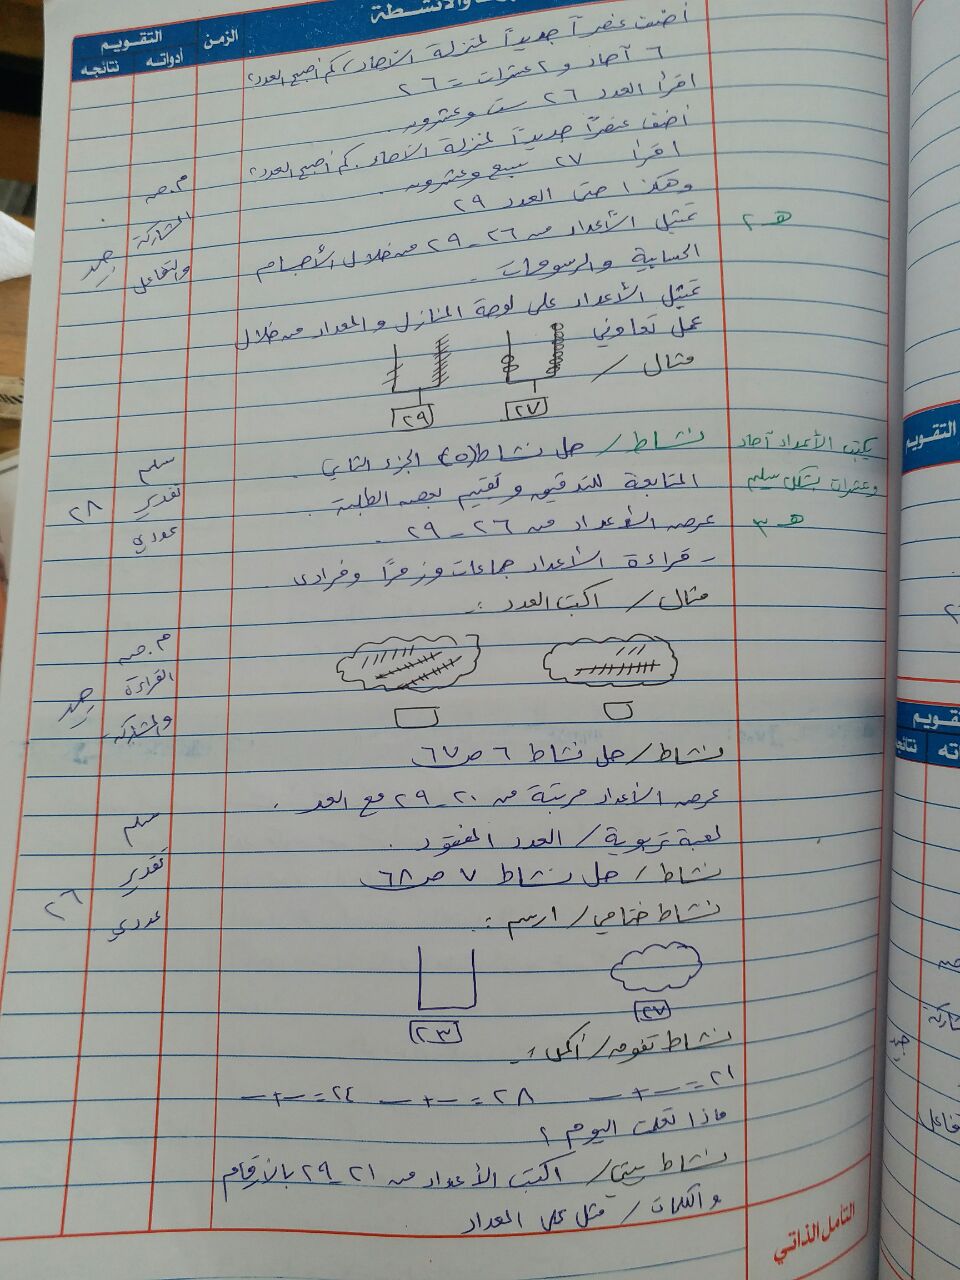 والأنشطة
الزمن
التقويم
أدواته
نتائجه
أضف عنصراً جديداً لمنزلة الآحاد، كم أصبح العدد؟
٦ آحاد و ٢ عشرات = ٢٦
اقرأ العدد ٢٦ ست وعشرون
أضف عنصراً جديداً لمنزلة الآحاد. كم أصبح العدد؟
اقرأ ٢٧ سبع وعشرون.
وهكذا حتى العدد ٢٩
هـ ٢
تمثيل الأعداد من ٢٦ - ٢٩ من خلال الأجسام
الحسابية والرسومات.
م. ص
المشاركة
والتفاعل
جيد
تمثيل الأعداد على لوحة المنازل والمعداد من خلال
عمل تعاوني
مثال /
٢٧
٢٩
يكتب الأعداد آحاد
وعشرات بشكل سليم
نشاط / حل نشاط (٥) الجزء الثاني.
المتابعة للتدقيق وتقييم بعض الطلبة.
سلم
تقدير
عددي
٢٨
هـ ٣
عرض الأعداد من ٢٦ - ٢٩.
- قراءة الأعداد جماعات وزمرًا وفرادى.
مثال / اكتب العدد :
م. ص
القراءة
والمشاركة
جيد
نشاط / حل نشاط ٦ ص ٦٧
عرض الأعداد مرتبة من ٢٠ - ٢٩ مع العد.
لعبة تربوية / العدد المفقود.
نشاط / حل نشاط ٧ ص ٦٨
سلم
تقدير
عددي
٢٦
نشاط ختامي / ارسم :
٢٧
٢٣
نشاط / أكمل :
٢١ = — + —
٢٨ = — + —
٢٤ = — + —
ماذا تعلمت اليوم ؟
نشاط بيتي / اكتب الأعداد من ٢١ - ٢٩ بالأرقام
والكلمات / مثل على المعداد
التأمل الذاتي
التقويم
نتائجه
جيد